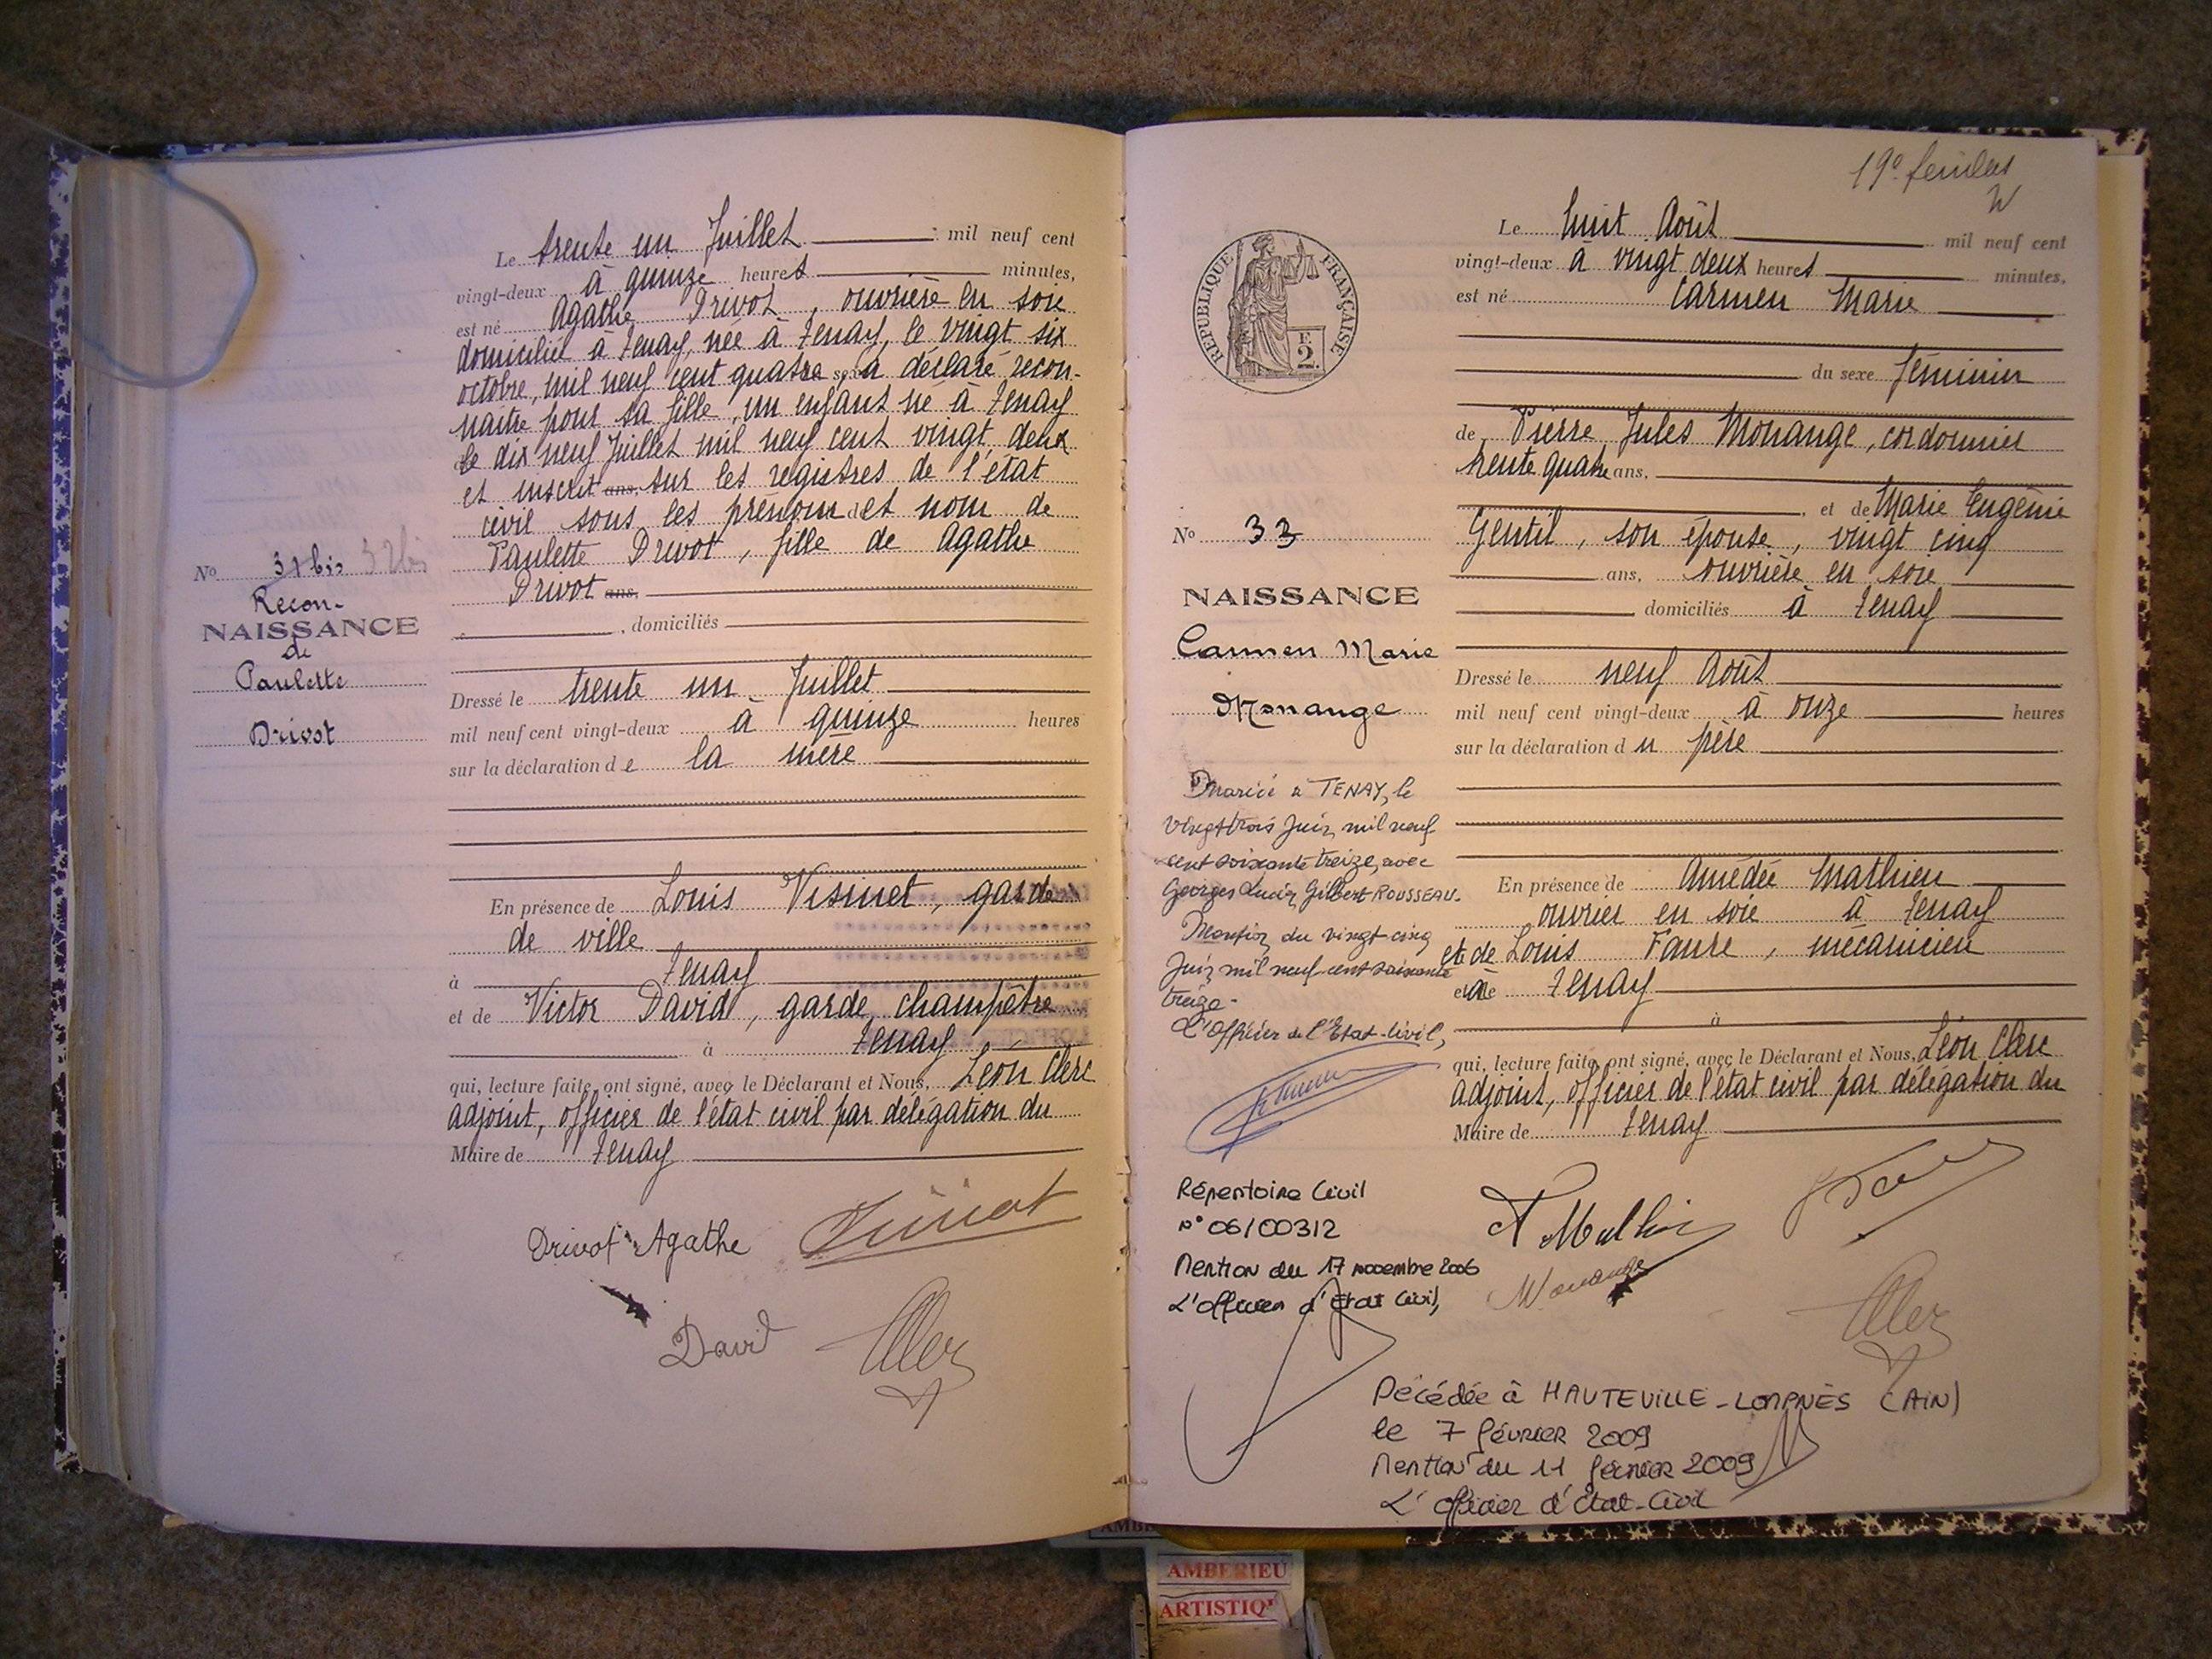 Le trente un Juillet mil neuf cent
vingt-deux à quinze heures minutes,
est né Agathe Drivot, ouvrière en soie
domiciliée à Tenay, née à Tenay, le vingt six
octobre, mil neuf cent quatre, a déclaré recon-
naitre pour sa fille, un enfant né à Tenay
le dix neuf Juillet mil neuf cent vingt deux
et inscrit ans, sur les registres de l'état
civil sous les prénom et nom de
Paulette Drivot, fille de Agathe
Drivot ans,
, domiciliés
No 31 bis 32 bis
Recon-
NAISSANCE
de
Paulette
Drivot
Dressé le trente un Juillet
mil neuf cent vingt-deux à quinze heures
sur la déclaration de la mère
En présence de Louis Visinet, garde
de ville
à Tenay
et de Victor David, garde champêtre
à Tenay
qui, lecture faite, ont signé, avec le Déclarant et Nous, Léon Clerc
adjoint, officier de l'état civil par délégation du
Maire de Tenay
Drivot Agathe
David
19e feuillet
Le huit Août mil neuf cent
vingt-deux à vingt deux heures minutes,
est né Carmen Marie
du sexe féminin
de Pierre Jules Monange, cordonnier
trente quatre ans,
, et de Marie Eugénie
Gentil, son épouse, vingt cinq
ans, ouvrière en soie
domiciliés à Tenay
REPUBLIQUE FRANÇAISE
F.
2.
No 33
NAISSANCE
Carmen Marie
Monange
Dressé le neuf Août
mil neuf cent vingt-deux à onze heures
sur la déclaration du père
En présence de Amédée Mathieu
ouvrier en soie à Tenay
et de Louis Faure, mécanicien
à Tenay
à
qui, lecture faite, ont signé, avec le Déclarant et Nous, Léon Clerc
adjoint, officier de l'état civil par délégation du
Maire de Tenay
Mariée à TENAY, le
vingt trois Juin mil neuf
cent soixante treize, avec
Georges Lucien Gilbert ROUSSEAU.
Mention du vingt-cinq
Juin mil neuf cent soixante
treize-
L'Officier de l'Etat-Civil,
Répertoire Civil
N° 06/00312
Mention du 17 novembre 2006
L'officier d'Etat Civil,
Monange
Décédée à HAUTEVILLE-LOMPNES (AIN)
le 7 février 2009
Mention du 11 février 2009
L'officier d'Etat-Civil
AMBERIEU
ARTISTIQ